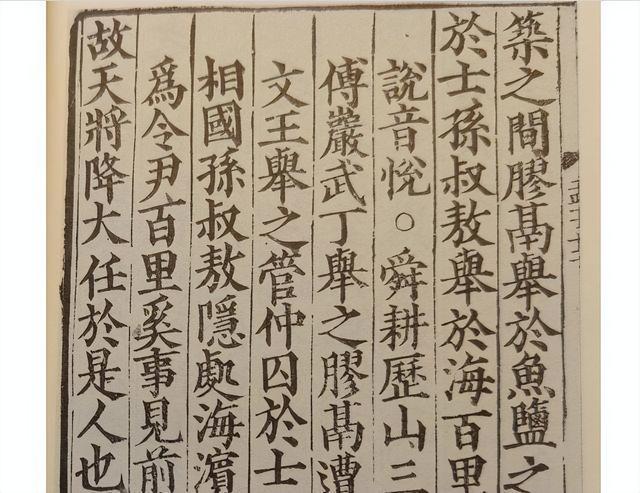 築之間膠鬲舉於魚鹽之
於士孫叔敖舉於海百里
說音悅○舜耕歷山三
傅巖武丁舉之膠鬲遭
文王舉之管仲囚於士
相國孫叔敖隱處海濱
為令尹百里奚事見前
故天將降大任於是人也